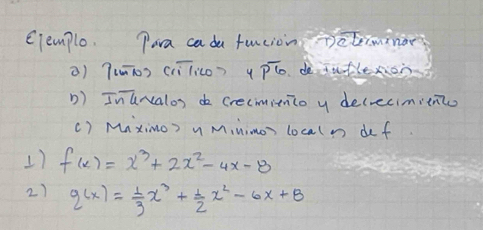 Ejemplo. Para cada función, Determinar:
a) Puntos críticos y pto. de inflexión
b) Intervalos de crecimiento y decrecimiento
c) Máximos y Mínimos locales de f.
1) f(x) = x³ + 2x² - 4x - 8
2) g(x) = 1/3 x³ + 1/2 x² - 6x + 8